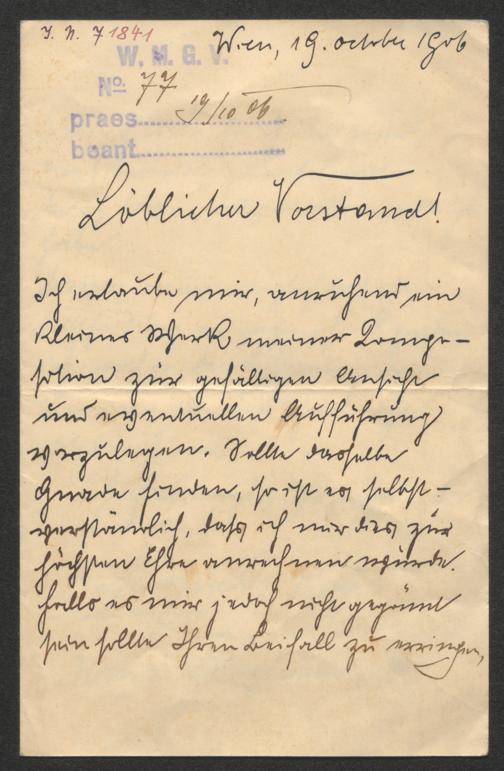 I. N. 71841
Wien, 19. october 1906
W. M. G. V.
No. 77
praes. 19/10 06
beant.
Löblicher Vorstand!
Ich erlaube mir, anruhend ein
kleines Werk meiner Kompo-
sition zur gefälligen Ansicht
und eventuellen Aufführung
vorzulegen. Sollte dasselbe
Gnade finden, so ist es selbst-
verständlich, dass ich mir dies zur
höchsten Ehre anrechnen würde.
Falls es mir jedoch nicht gegönnt
sein sollte Ihren Beifall zu erringen,